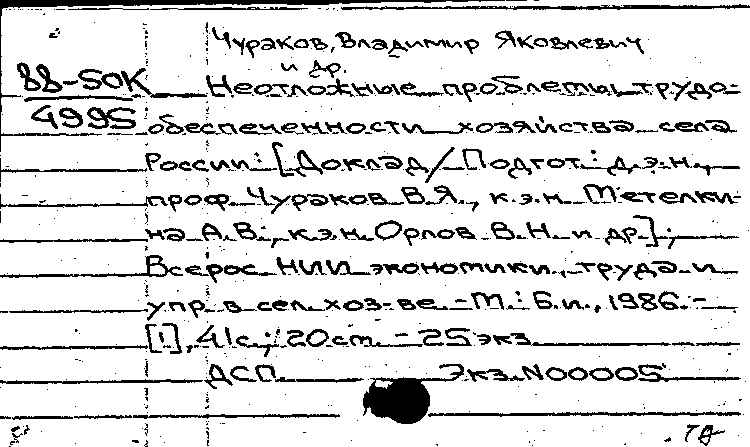 Чураков, Владимир Яковлевич
и др.
88-50К
4995
Неотложные проблемы трудо-
обеспеченности хозяйства села
России: [Доклад/Подгот.: д.э.н.,
проф. Чураков В.Я., к.э.н. Метелки-
на А.В., к.э.н. Орлов В.Н. и др.];
Всерос. НИИ экономики, труда и
упр. в сел. хоз-ве. - М.: Б.и., 1986. -
[1], 41с.; 20см. - 25 экз.
ДСП. Экз. N00005